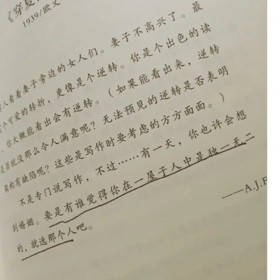 《穿
1939/欧文
人看着妻子旁边的女人们。妻子不高兴了。最
个可爱的转折,更像是个逆转。你是个出色的读
你大概能看出会有逆转。(如果能看出来,逆转
就没那么令人满意呢?无法预见的逆转是否表明
构有缺陷呢?这些是写作时要考虑的方方面面。)
不是专门说写作,不过……有一天,你也许会想
到婚姻。要是有谁觉得你在一屋子人中是独一无二
的,就选那个人吧。
——A.J.F